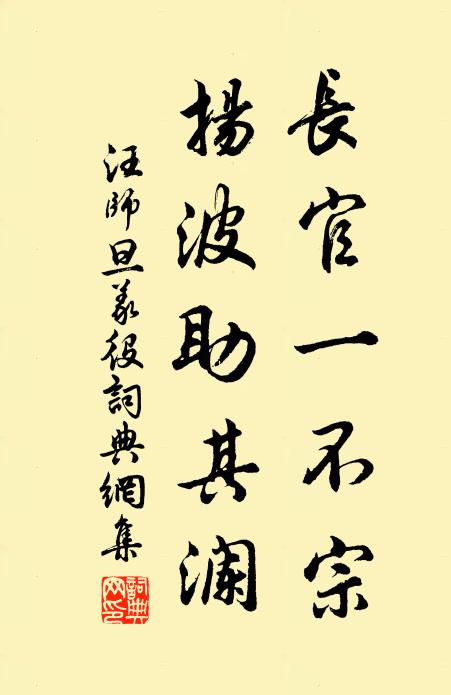 長官一不宗
揚波助其瀾
汪師旦義役詞典網集
詞典網印